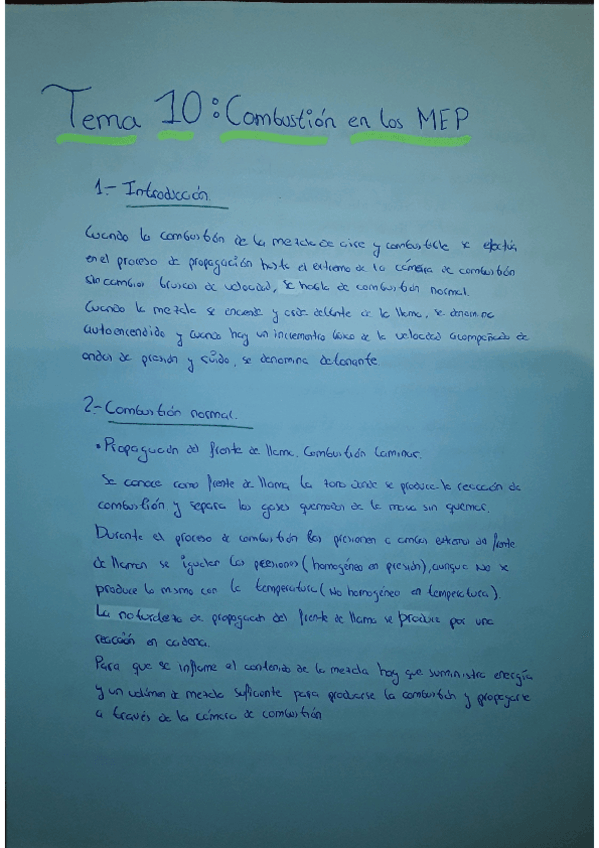 Tema 10: Combustión en los MEP
1.- Introducción
Cuando la combustión de la mezcla de aire y combustible se efectúa
en el proceso de propagación hasta el extremo de la cámara de combustión
sin cambios bruscos de velocidad, se habla de combustión normal.
Cuando la mezcla se enciende y arde delante de la llama, se denomina
autoencendido y cuando hay un incremento de la velocidad acompañado de
ondas de presión y ruido, se denomina detonante
2.- Combustión normal.
• Propagación del frente de llama. Combustión Laminar.
Se conoce como frente de llama, la zona donde se produce la reacción de
combustión y separa los gases quemados de la masa sin quemar.
Durante el proceso de combustión las presiones a ambos extremos del frente
de llaman se igualan las presiones (homogéneo en presión), aunque No se
produce lo mismo con la temperatura (No homogéneo en temperatura).
La naturaleza de propagación del frente de llama se produce por una
reacción en cadena.
Para que se inflame el contenido de la mezcla hay que suministra energía
y un volúmen de mezcla suficiente para producirse la combustión y propagarse
a través de la cámara de combustión